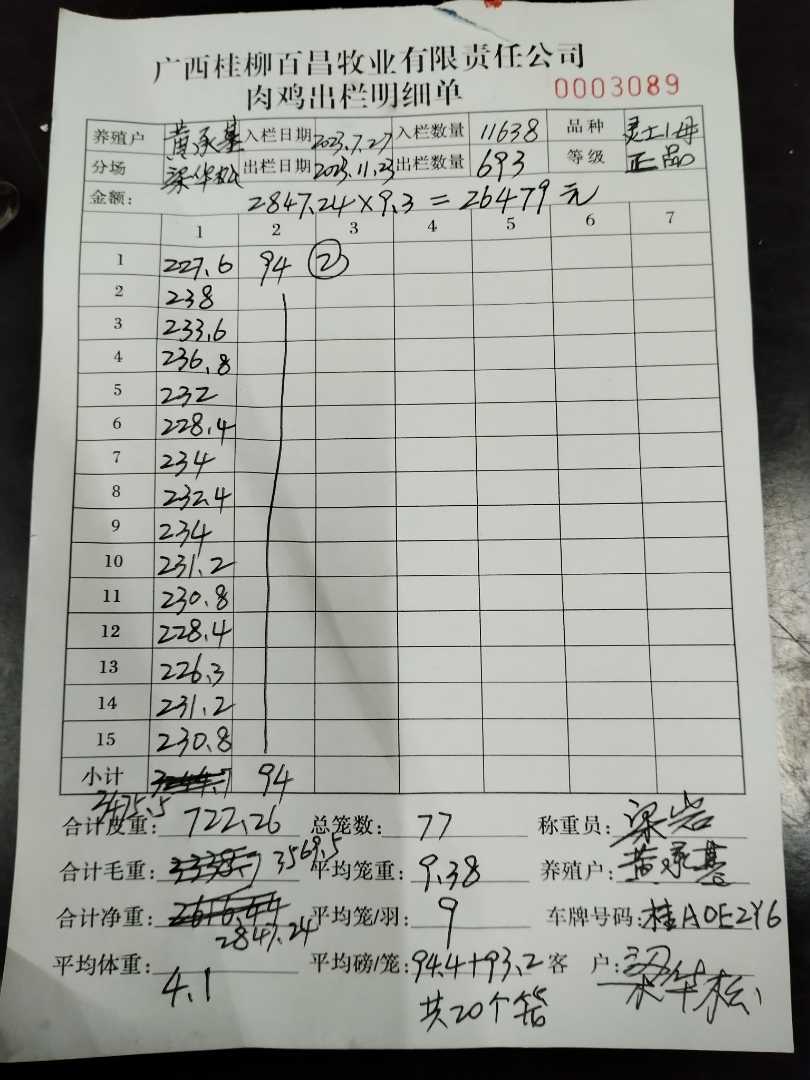 广西桂柳百昌牧业有限责任公司
肉鸡出栏明细单 0003089
养殖户 黄承基 入栏日期 2023.7.27 入栏数量 11638 品种 灵士1母
分场 梁华松 出栏日期 2023.11.23 出栏数量 693 等级 正品
金额: 2847.24×9.3=26479元
1 2 3 4 5 6 7
1 227.6 94 ②
2 238
3 233.6
4 236.8
5 232
6 228.4
7 234
8 232.4
9 234
10 231.2
11 230.8
12 228.4
13 226.3
14 231.2
15 230.8
小计 3244.7 94
3475.5
合计皮重: 722.26 总笼数: 77 称重员: 梁岩
合计毛重: 3338.7 3569.5 平均笼重: 9.38 养殖户: 黄承基
合计净重: 2616.44 平均笼/羽: 9 车牌号码: 桂A0E2Y6
2847.24
平均体重: 4.1 平均磅/笼: 94.4+93.2 客 户: 梁华松
共20个